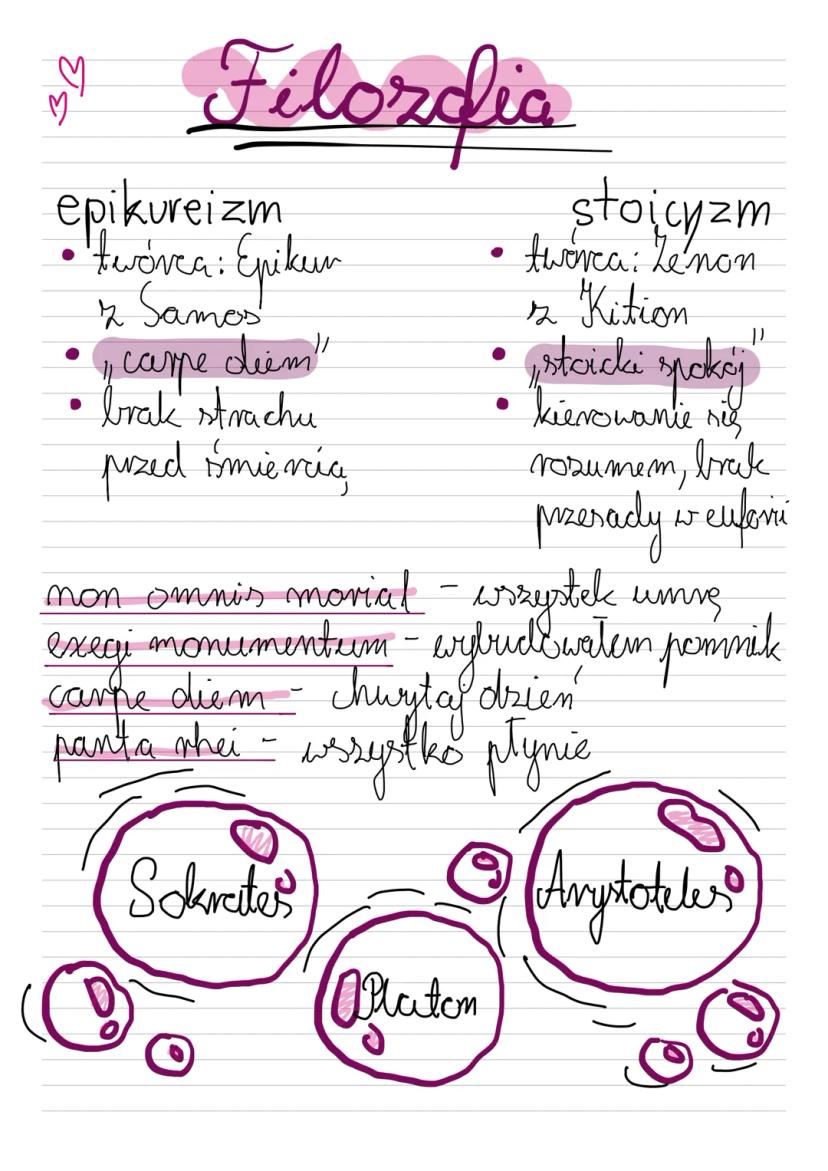 Filozofia
epikureizm
• twórca: Epikur
z Samos
• „carpe diem"
• brak strachu
przed śmiercią
stoicyzm
• twórca: Zenon
z Kition
• „stoicki spokój"
• kierowanie się
rozumem, brak
przesady w euforii
non omnis morial - wszystek umrę
exegi monumentum - wybudowałem pomnik
carpe diem - chwytaj dzień
panta rhei - wszystko płynie
Sokrates
Platon
Arystoteles